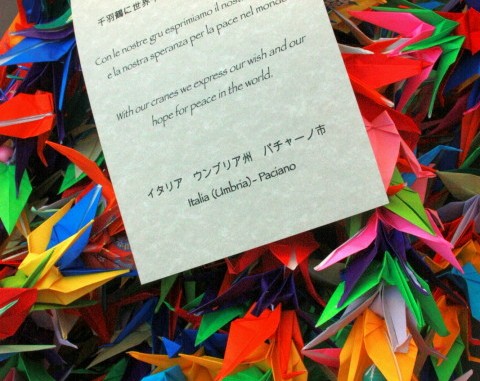 千羽鶴に世界
Con le nostre gru esprimiamo il
e la nostra speranza per la pace nel mondo
With our cranes we express our wish and our
hope for peace in the world.
イタリア ウンブリア州 パチャーノ市
Italia (Umbria) - Paciano